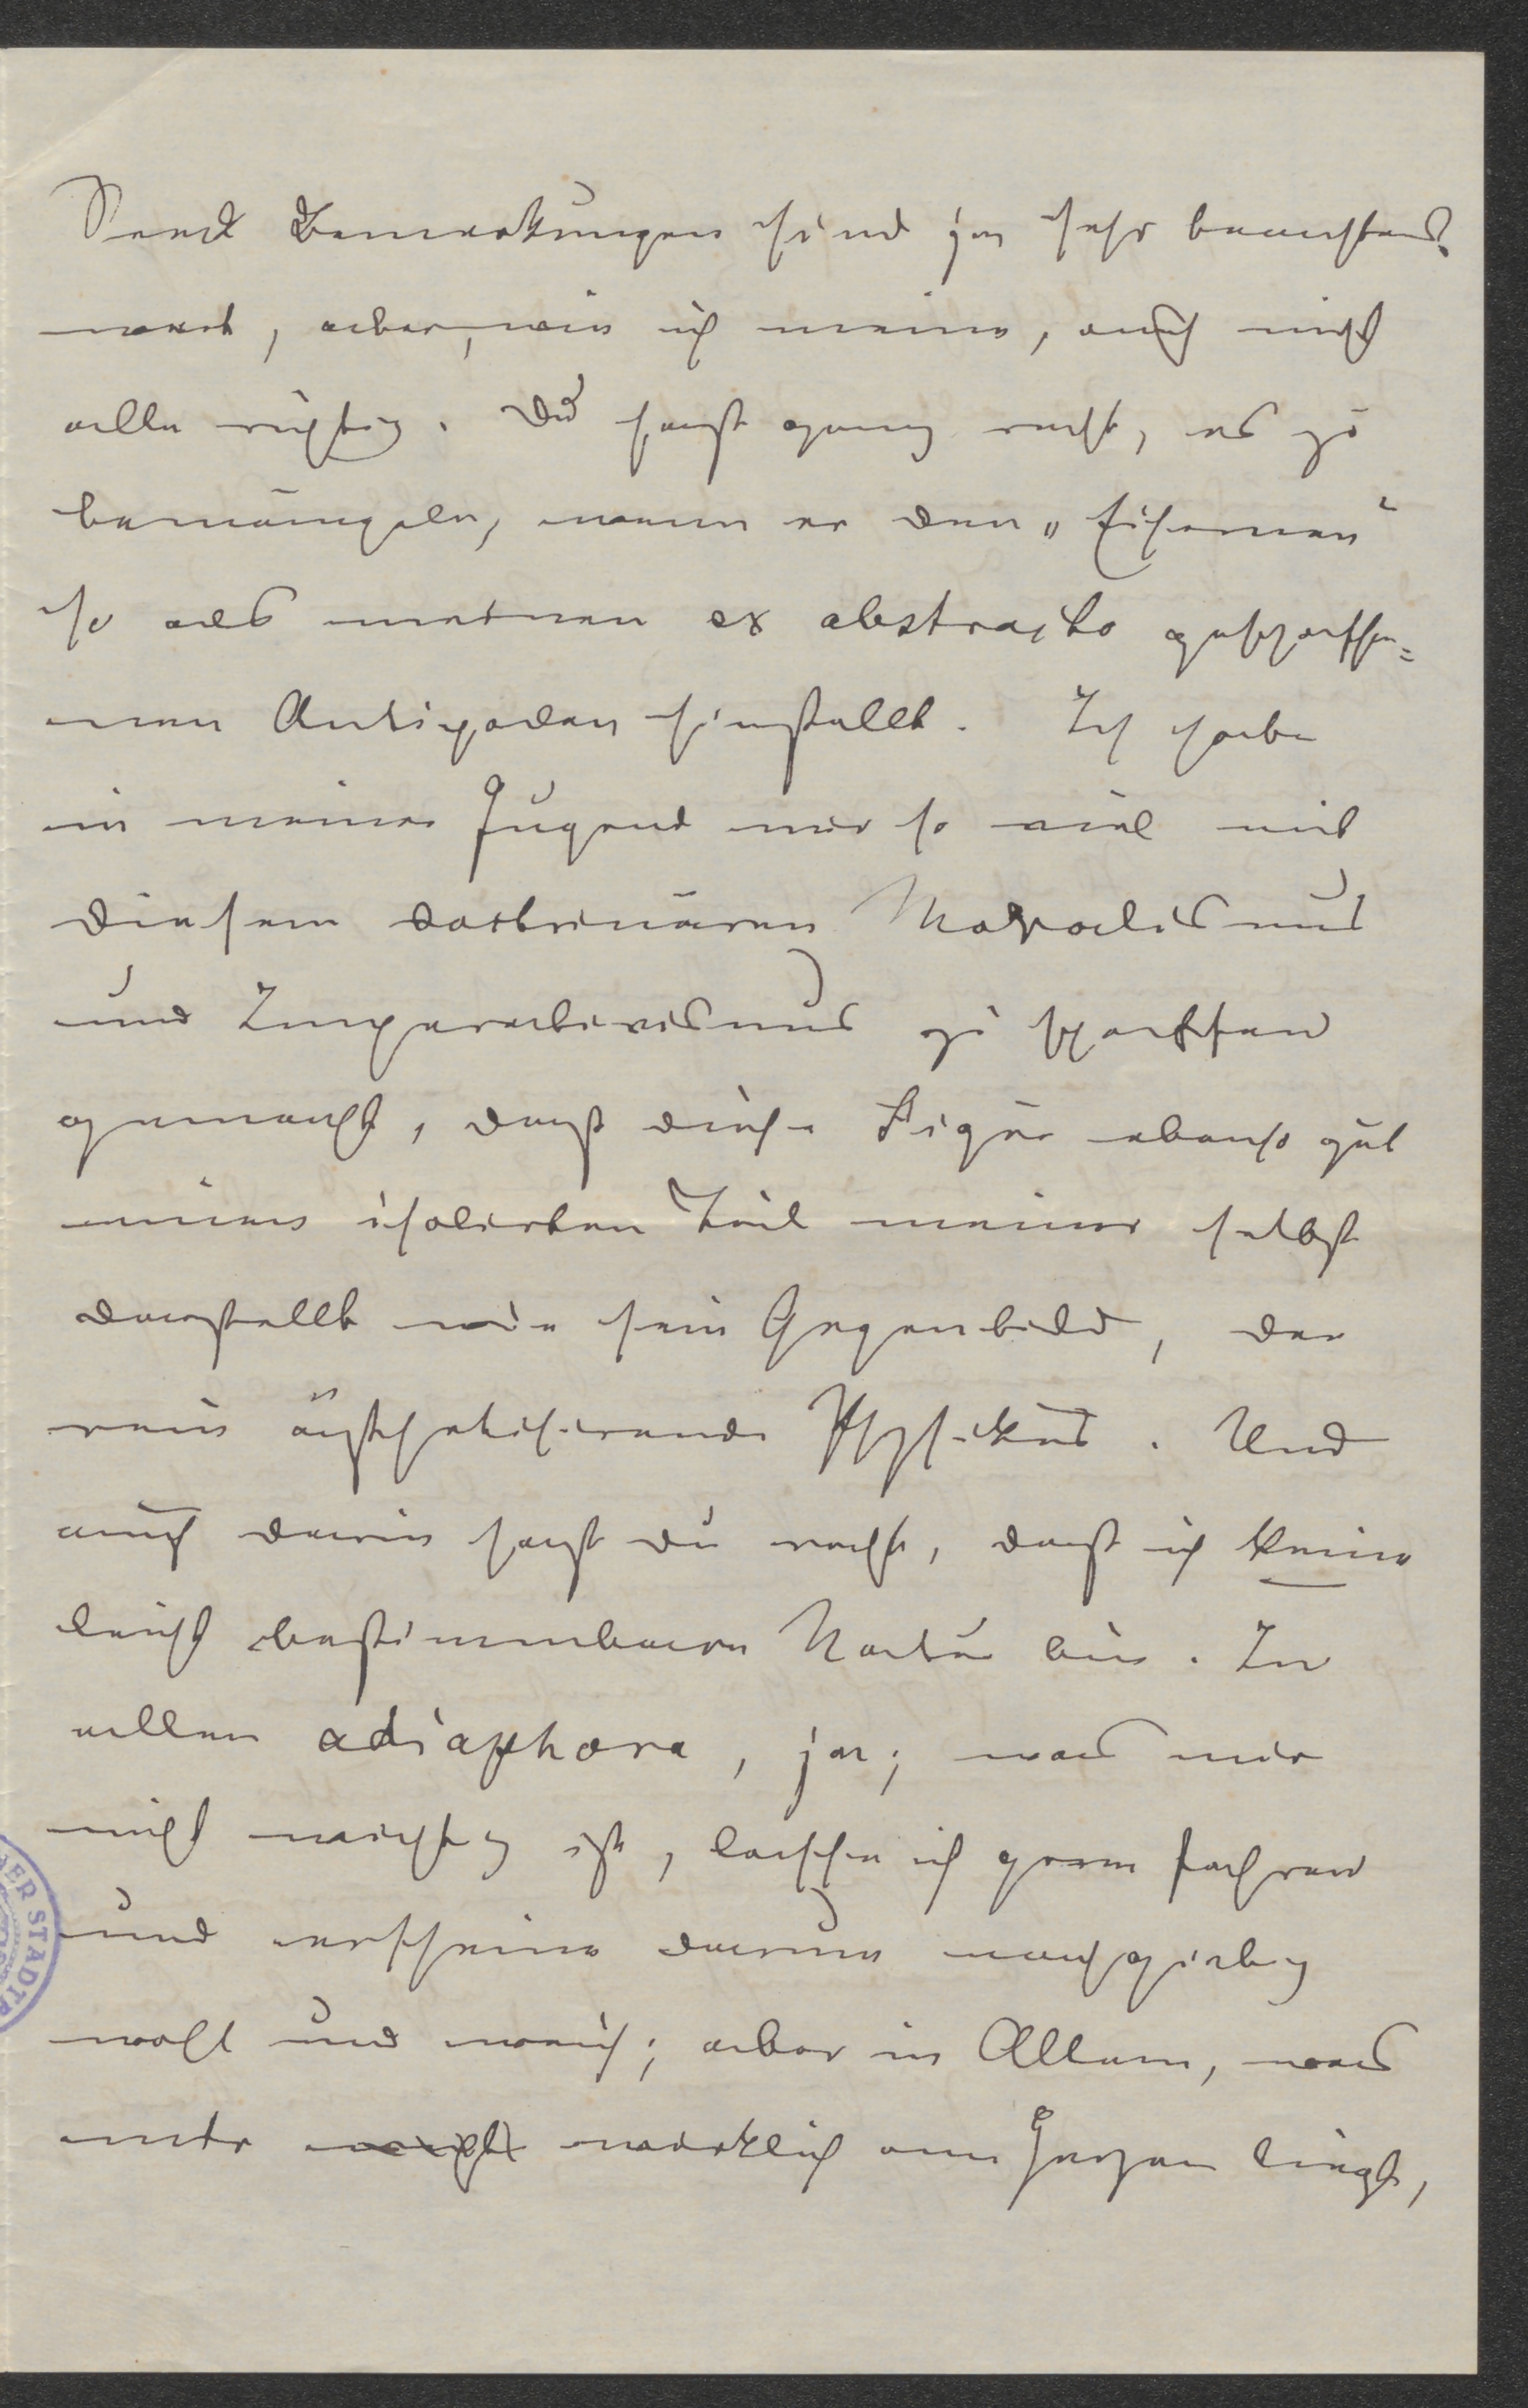 Bemerkungen sind ja sehr beachtens-
wert, aber, wie ich meine, auch nicht
alle richtig. Du hast ganz recht, es zu
bemängeln, wenn er den „Eisernen“
so als meinen ex abstracto geschaffe=
nen Antipoden hinstellt. Ich habe
in meiner Jugend mir so viel mit
diesem doktrinären Moralismus
und Imperativismus zu schaffen
gemacht, daß diese Figur ebenso gut
einen isolierten Teil meiner selbst
darstellt wie sein Gegenbild, der
rein ästhetisierende Physikus. Und
auch darin hast du recht, daß ich keine
leicht bestimmbare Natur bin. In
allen adiaphora, ja; was mir
nicht wichtig ist, lasse ich gern fahren
und erscheine darum nachgiebig
wohl und weich; aber in Allem, was
mir wirklich am Herzen liegt,
ER STADT